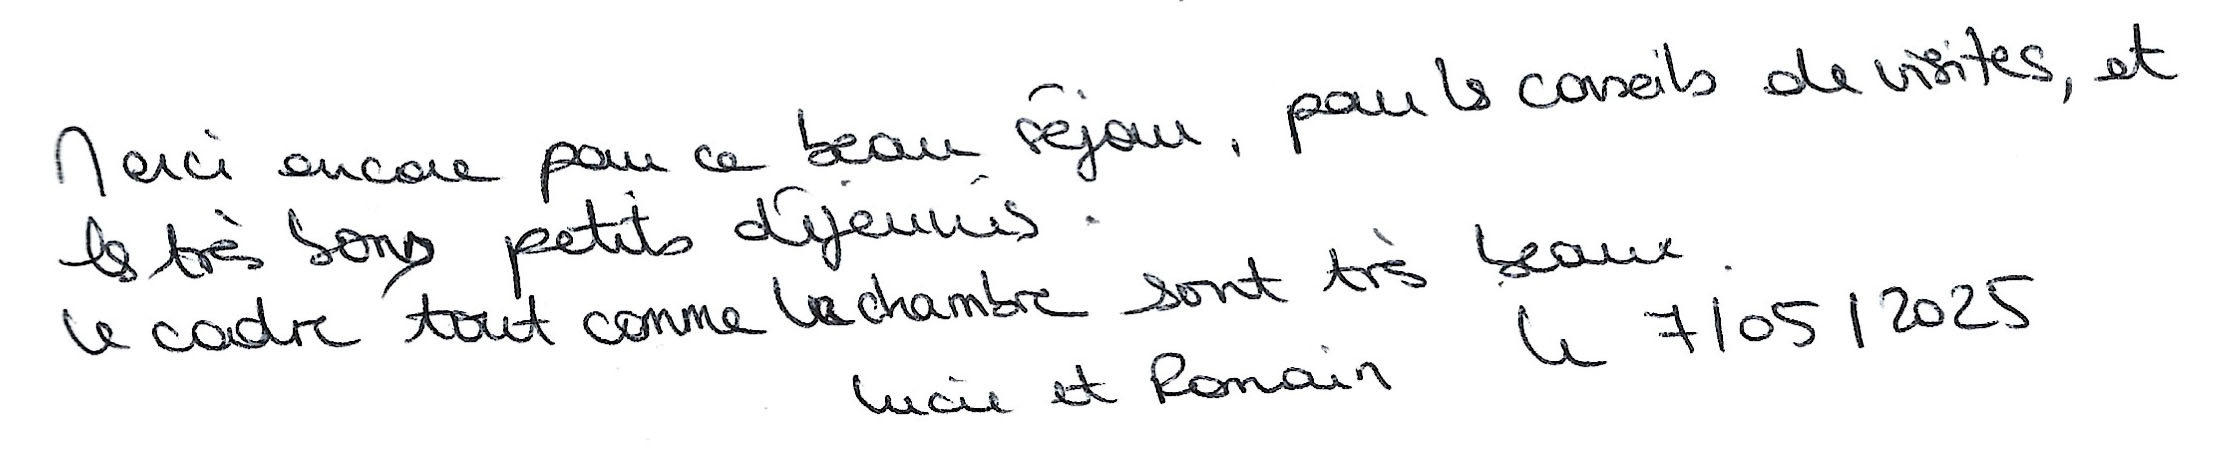 Merci encore pour ce beau séjour, pour les conseils de visites, et
les très bons petits déjeunés.
Le cadre tout comme la chambre sont très beaux.
Le 7/05/2025
Lucie et Romain